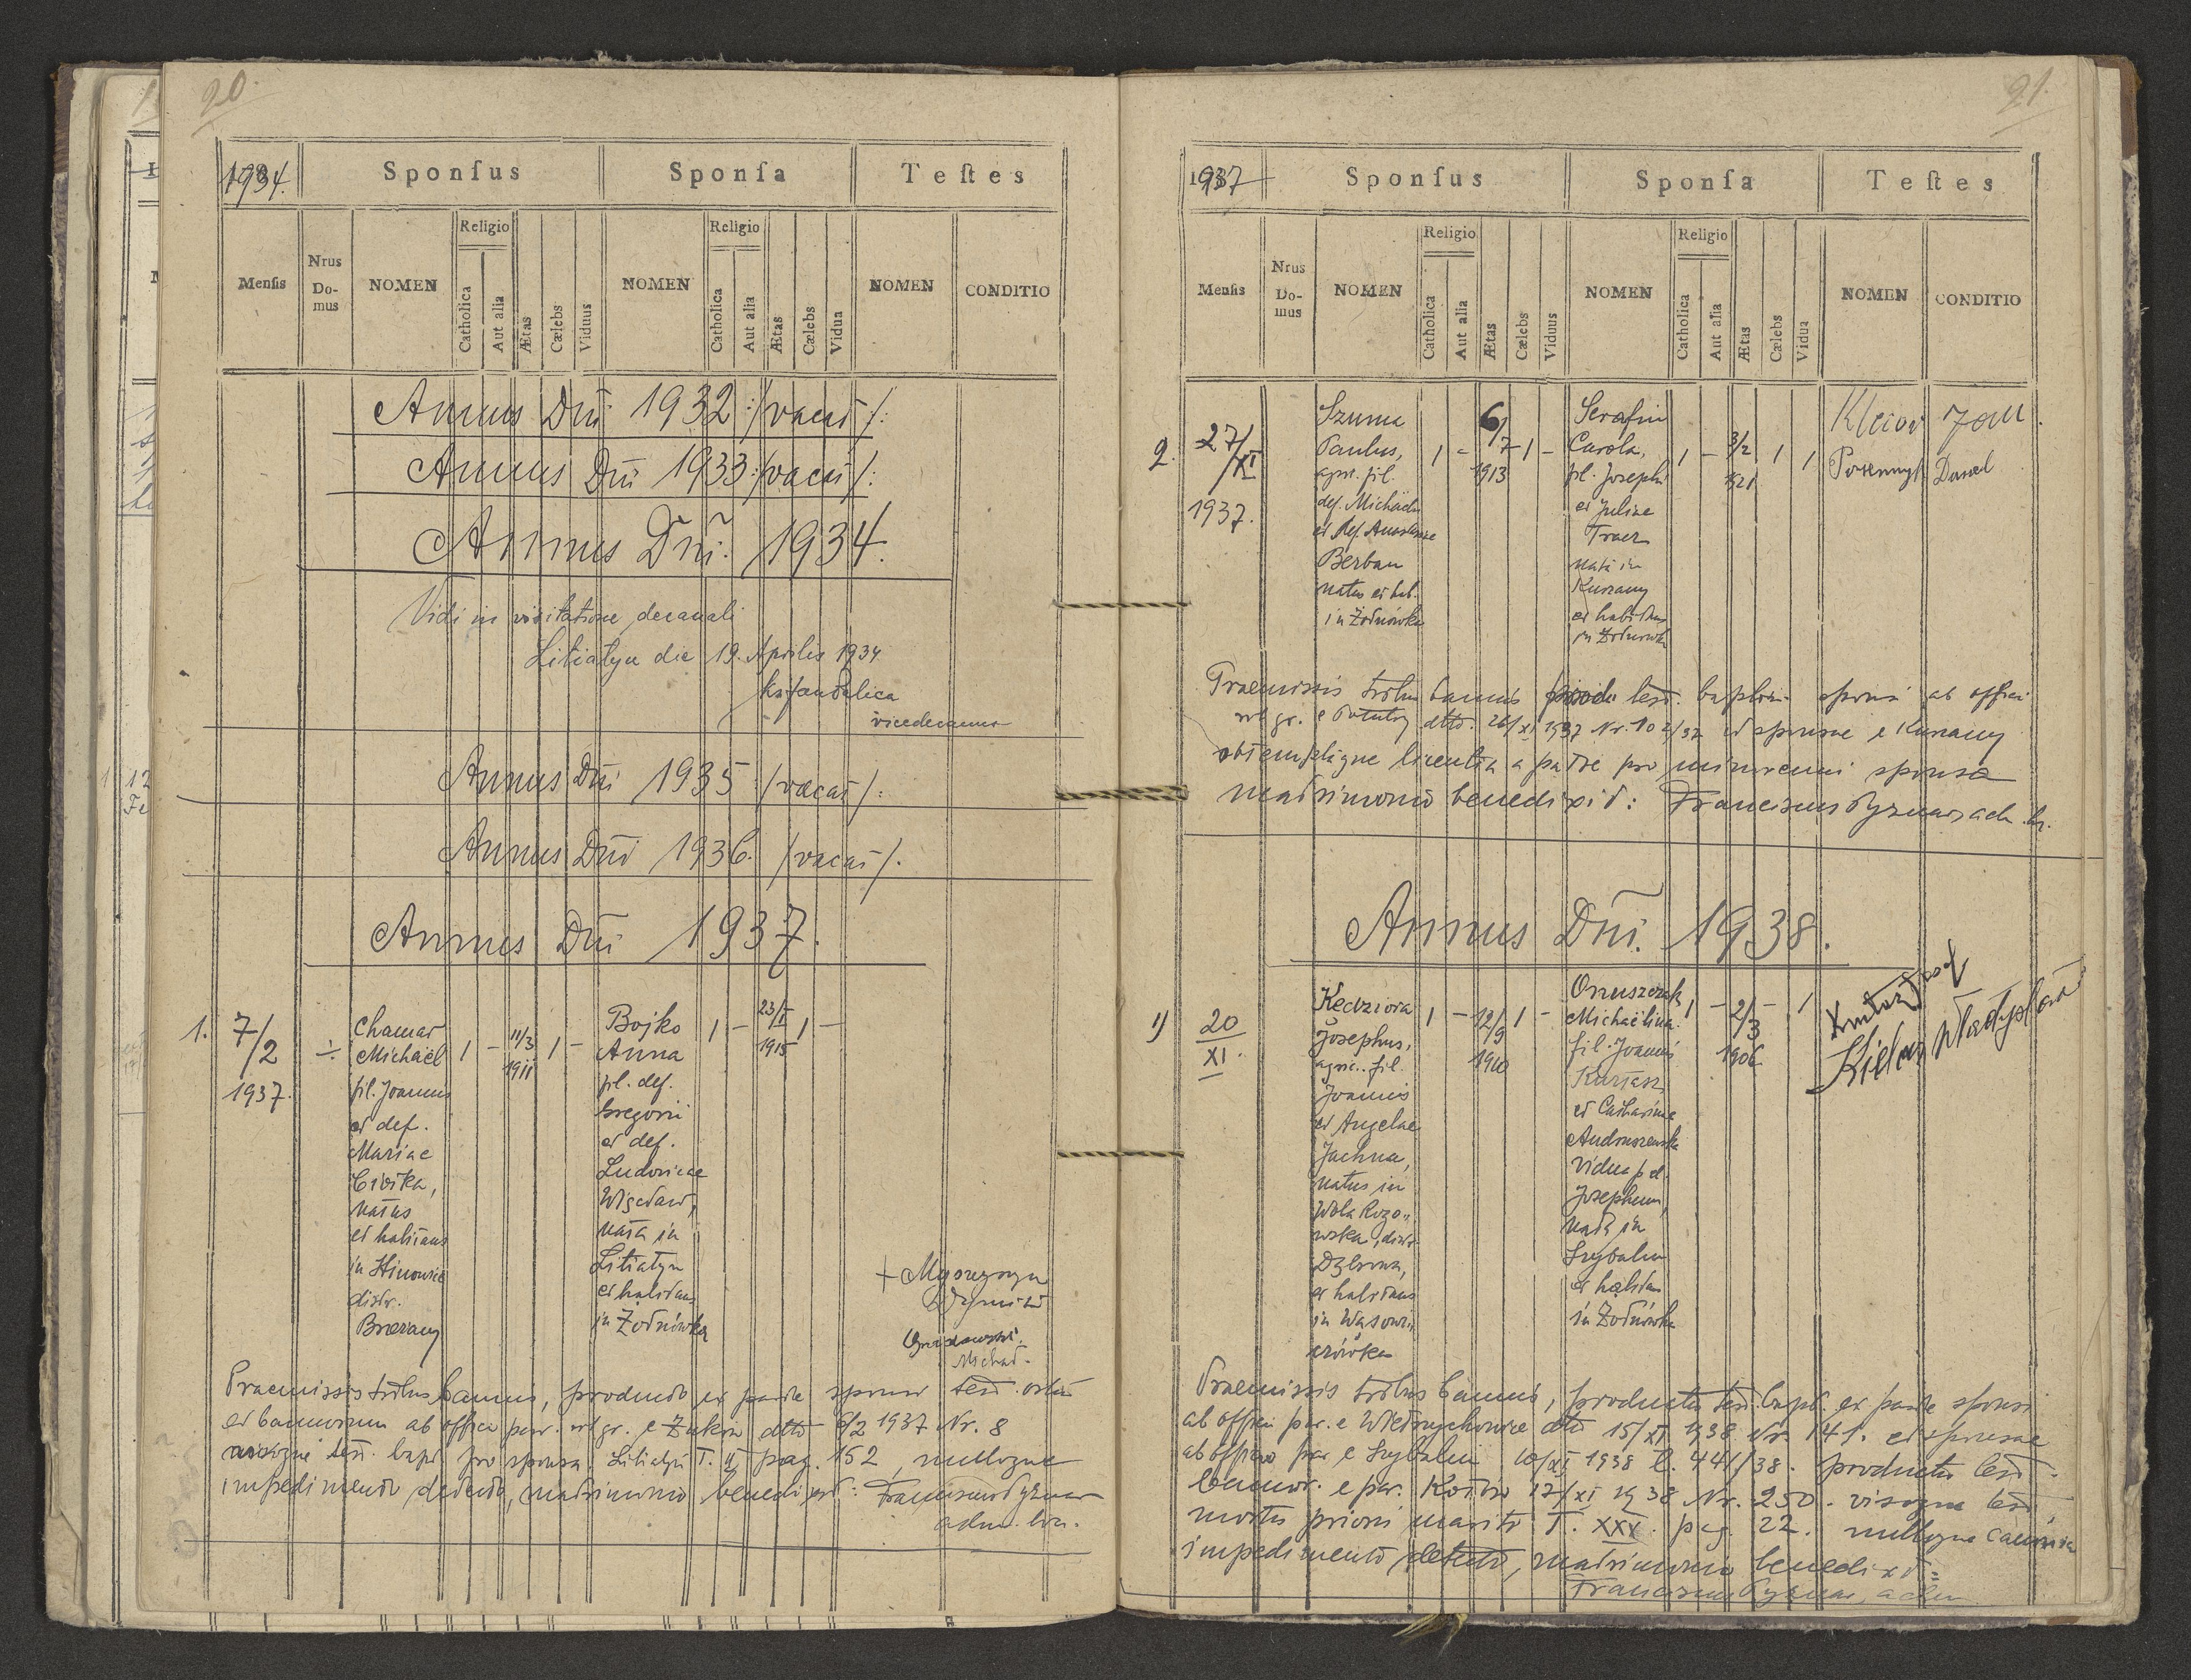 20.
1934.
Sponſus
Sponſa
Teſtes
Menſis
Nrus Domus
NOMEN
Religio
Catholica
Aut alia
Ætas
Cælebs
Viduus
NOMEN
Religio
Catholica
Aut alia
Ætas
Cælebs
Vidua
NOMEN
CONDITIO
Annus Dni 1932 :/vacat/:
Annus Dni 1933 :/vacat/:
Annus Dni. 1934.
Vidi in visitatione decanali
Litiatyn die 19. Aprilis 1934
vicedecanus
Annus Dni 1935 :/vacat/:
Annus Dni 1936. /vacat/.
Annus Dni 1937.
1. 7/2
1937.
Chamar
Michaël
fil. Joannis
et def.
Mariae
natus
et habitans
in Hinowice
distr.
Brzeżany
1 - 11/3 1911 1 -
Bojko
Anna
fil. def.
Gregorii
et def.
Ludovicae
nata in
Litiatyn
et habitans
in Żołnówka
1 - 23/I 1915 1 -
+ Myszyszyn
Dymitr
Michał.
Praemissis tribus bannis, producto ex parte sponsi test. ortus
et bannorum ab officio par. rit gr. e Żuków dtto 6/2 1937 Nr. 8
visoque test. bapt. pro sponsa, Litiatyn T. II pag. 152, nulloque
impedimento detecto, matrimonio benedixit: Franciscus Pyznar
adm. loci.
21.
1937
Sponſus
Sponſa
Teſtes
Menſis
Nrus Domus
NOMEN
Religio
Catholica
Aut alia
Ætas
Cælebs
Viduus
NOMEN
Religio
Catholica
Aut alia
Ætas
Cælebs
Vidua
NOMEN
CONDITIO
2. 27/XI
1937.
Szuma
Paulus,
agric. fil.
def. Michaelis
et def. Anastasiae
Berban
natus et hab.
in Żołnówka
1 - 6/7 1913 1 -
Serafin
Carola,
fil. Josephi
et Juliae
Tracz
nata in
Kurzany
et habitans
in Żołnówka
1 - 3/2 1921 1 1
Jan
Daniel
Praemissis tribus bannis test. baptismi sponsi ab officio
rit gr. e Potutory dtto. 26/XI 1937 Nr. 102/37 et sponsae e Kurzany
obtentaque licentia a patre pro minorenni sponsa
matrimonio benedixit: Franciscus Pyznar adm. loc.
Annus Dni. 1938.
1) 20
XI.
Kędziora
Josephus,
agric. fil.
Joannis
et Angelae
Jachna,
natus in
Wola Rogowska, distr.
Dąbrowa,
et habitans
in
1 - 12/9 1910 1 -
Onuszczak
Michaëlina
fil. Joannis
Kurtasz
et Catharinae
Andruszewska
Vidua p. d.
Josephum,
nata in
Szybalin
et habitans
in Żołnówka
1 - 2/3 1906 - 1
Józef
Kielar Władysław
Praemissis tribus bannis, producto test. bapt. ex parte sponsi
ab officio par. e Wietrzychowice dtto 15/XI 1938 Nr. 141. et sponsae
ab officio par e Szybalin 10/XI 1938 L. 441/38. producto test.
bannor. e par. Kotów 17/XI 1938 Nr. 250. visoque test.
mortis prioris mariti T. XXX. pag. 22. nulloque canonico
impedimento detecto, matrimonio benedixit:
Franciscus Pyznar, adm